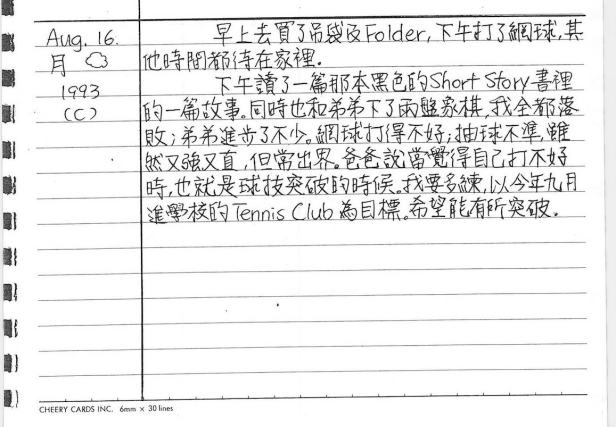 Aug. 16. 早上去買了吊袋及Folder, 下午打了網球, 其
月 他時間都待在家裡.
1993 下午讀了一篇那本黑色的Short Story書裡
(C) 的一篇故事。同時也和弟弟下了兩盤象棋, 我全部落
敗; 弟弟進步了不少。網球打得不好; 抽球不準, 雖
然又強又直, 但常出界。爸爸說當覺得自己打不好
時, 也就是球技突破的時候。我要多練, 以今年九月
進學校的Tennis Club為目標。希望能有所突破.
CHEERY CARDS INC. 6mm × 30 lines